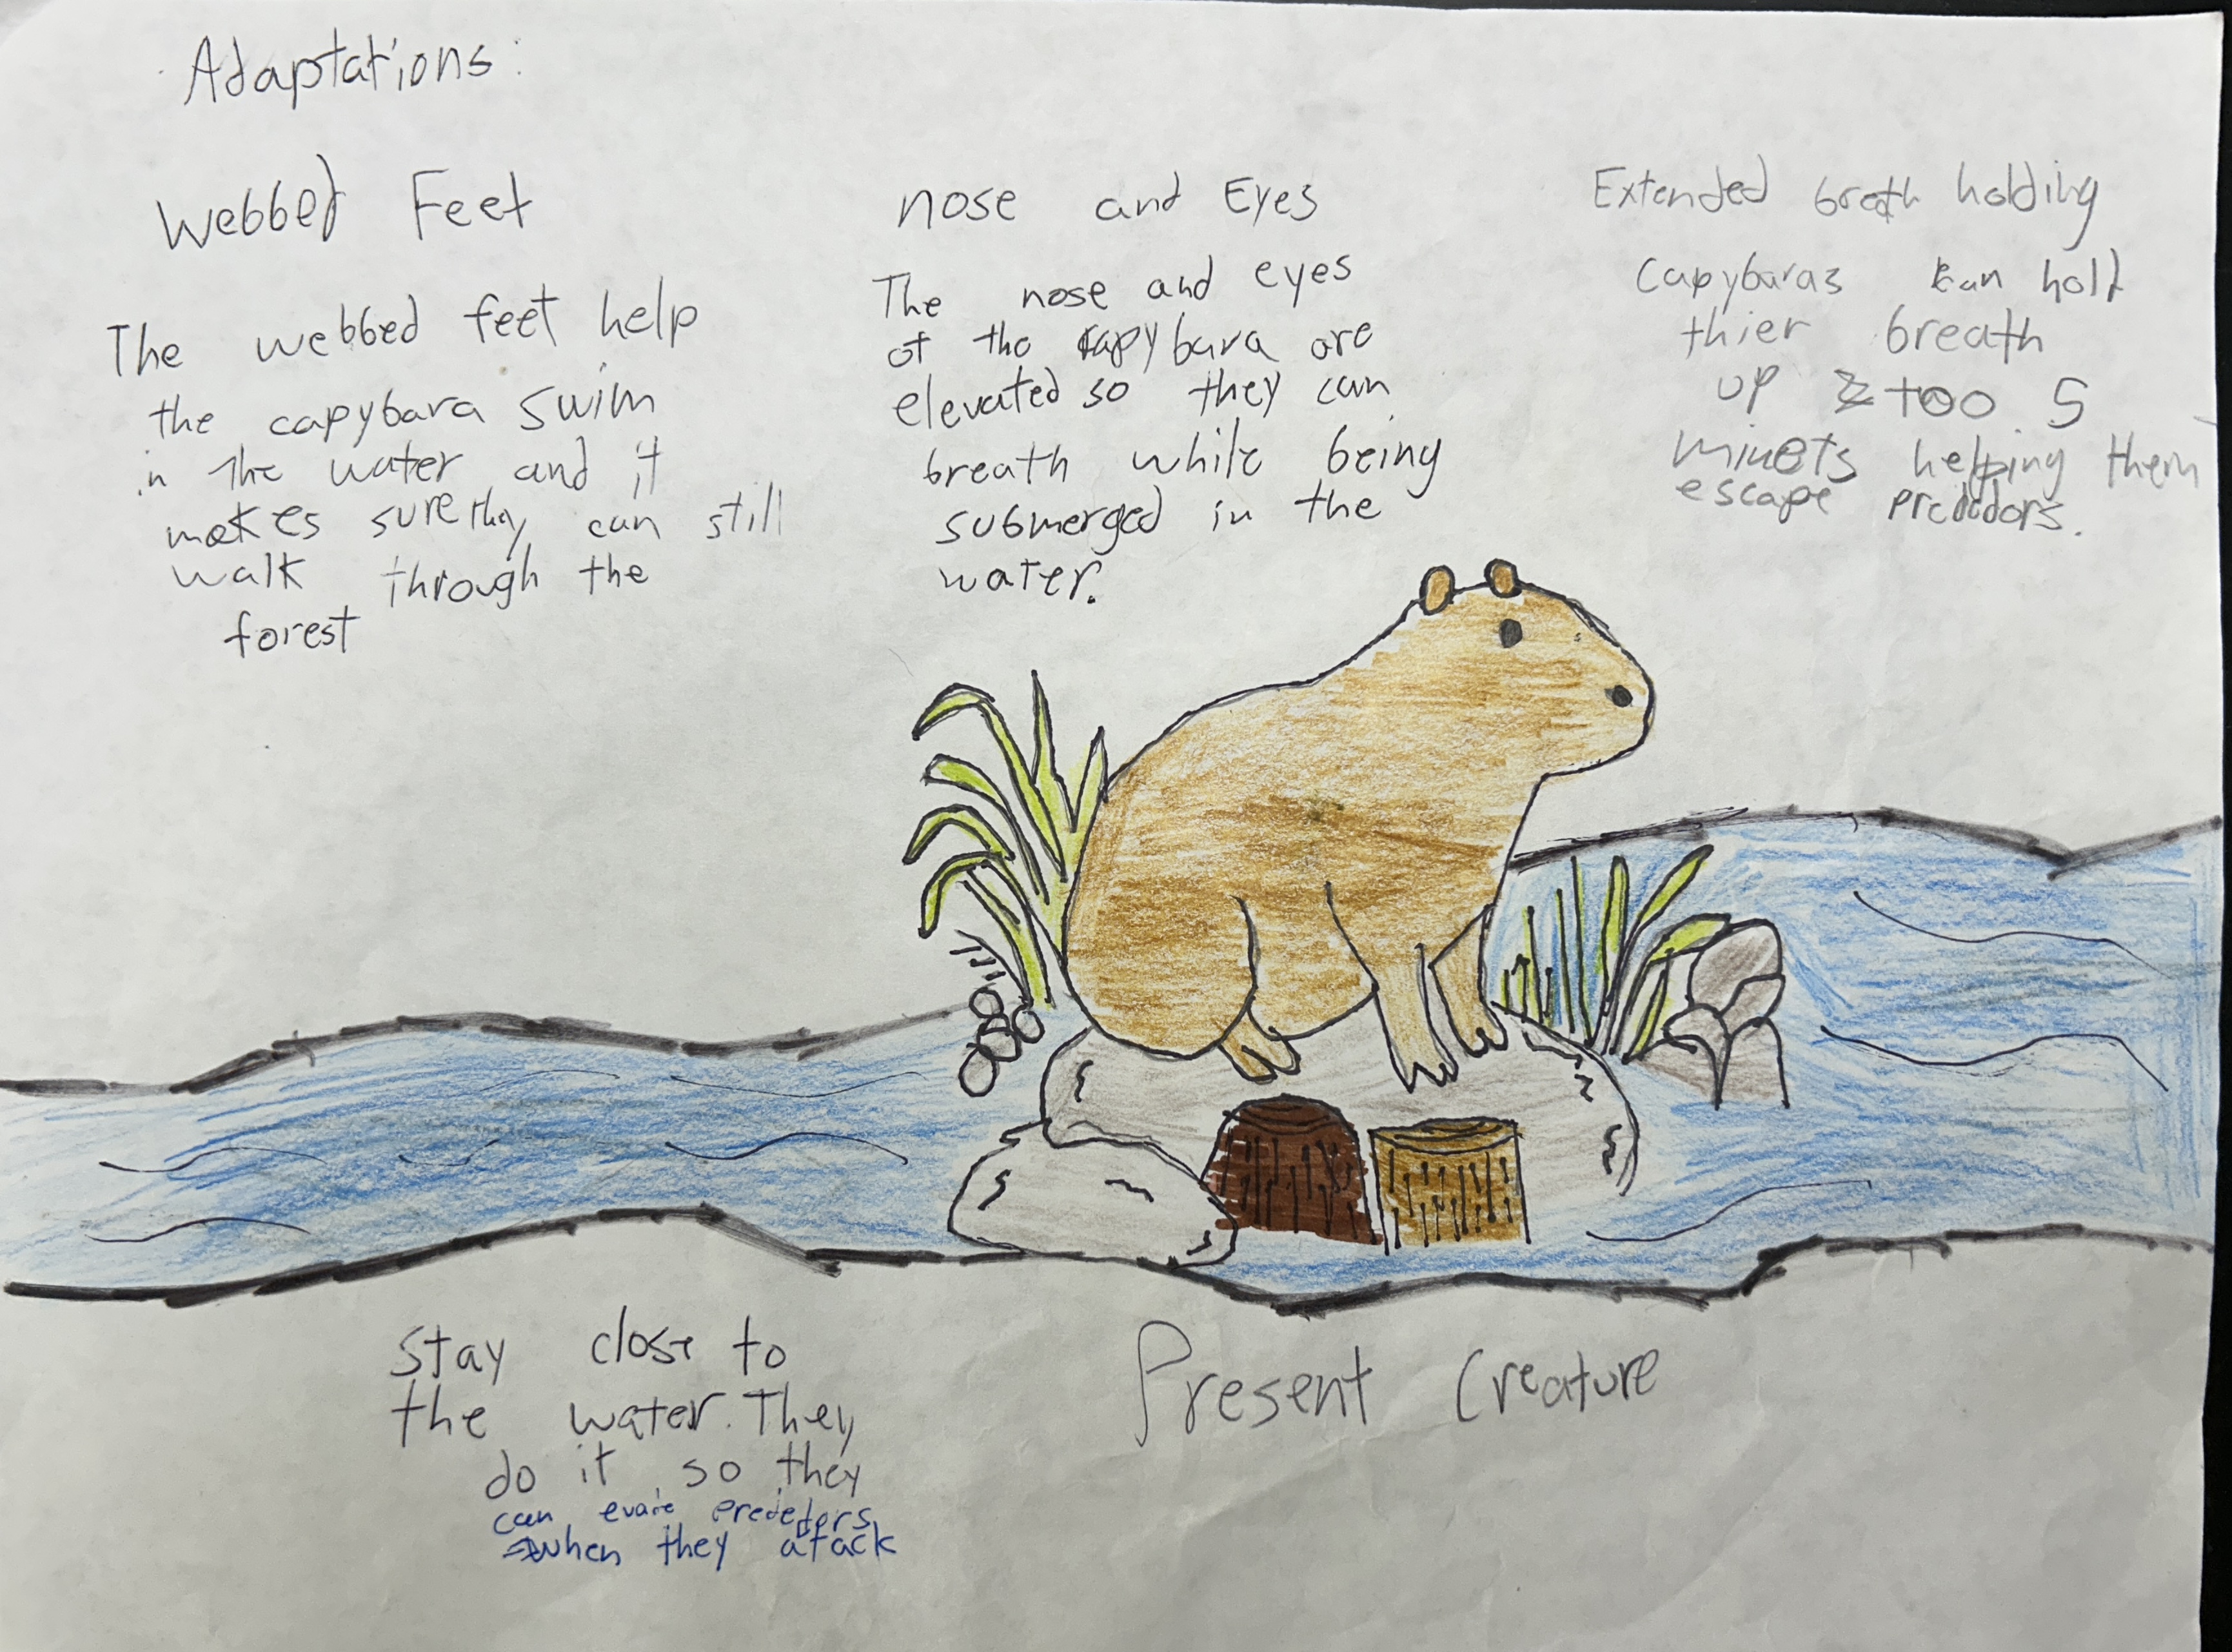 Adaptations:
Webbed Feet
The webbed feet help
the capybara swim
in the water and it
makes sure they can still
walk through the
forest
nose and Eyes
The nose and eyes
of the capybara are
elevated so they can
breath while being
submerged in the
water.
Extended breath holding
Capybaras can hold
thier breath
up too 5
minets helping them
escape predidors.
Stay close to
the water. They
do it so they
can evade prededers
when they atack
Present Creature